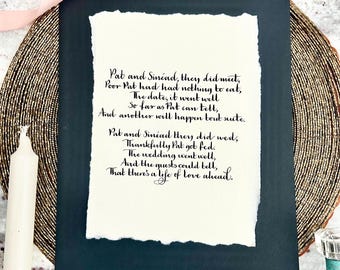 Pat and Sinéad, they did meet,
Poor Pat had had nothing to eat,
The date, it went well
So far as Pat can tell,
And another will happen tout suite.
Pat and Sinéad they did wed,
Thankfully Pat got fed.
The wedding went well,
And the guests could tell,
That there's a life of love ahead.